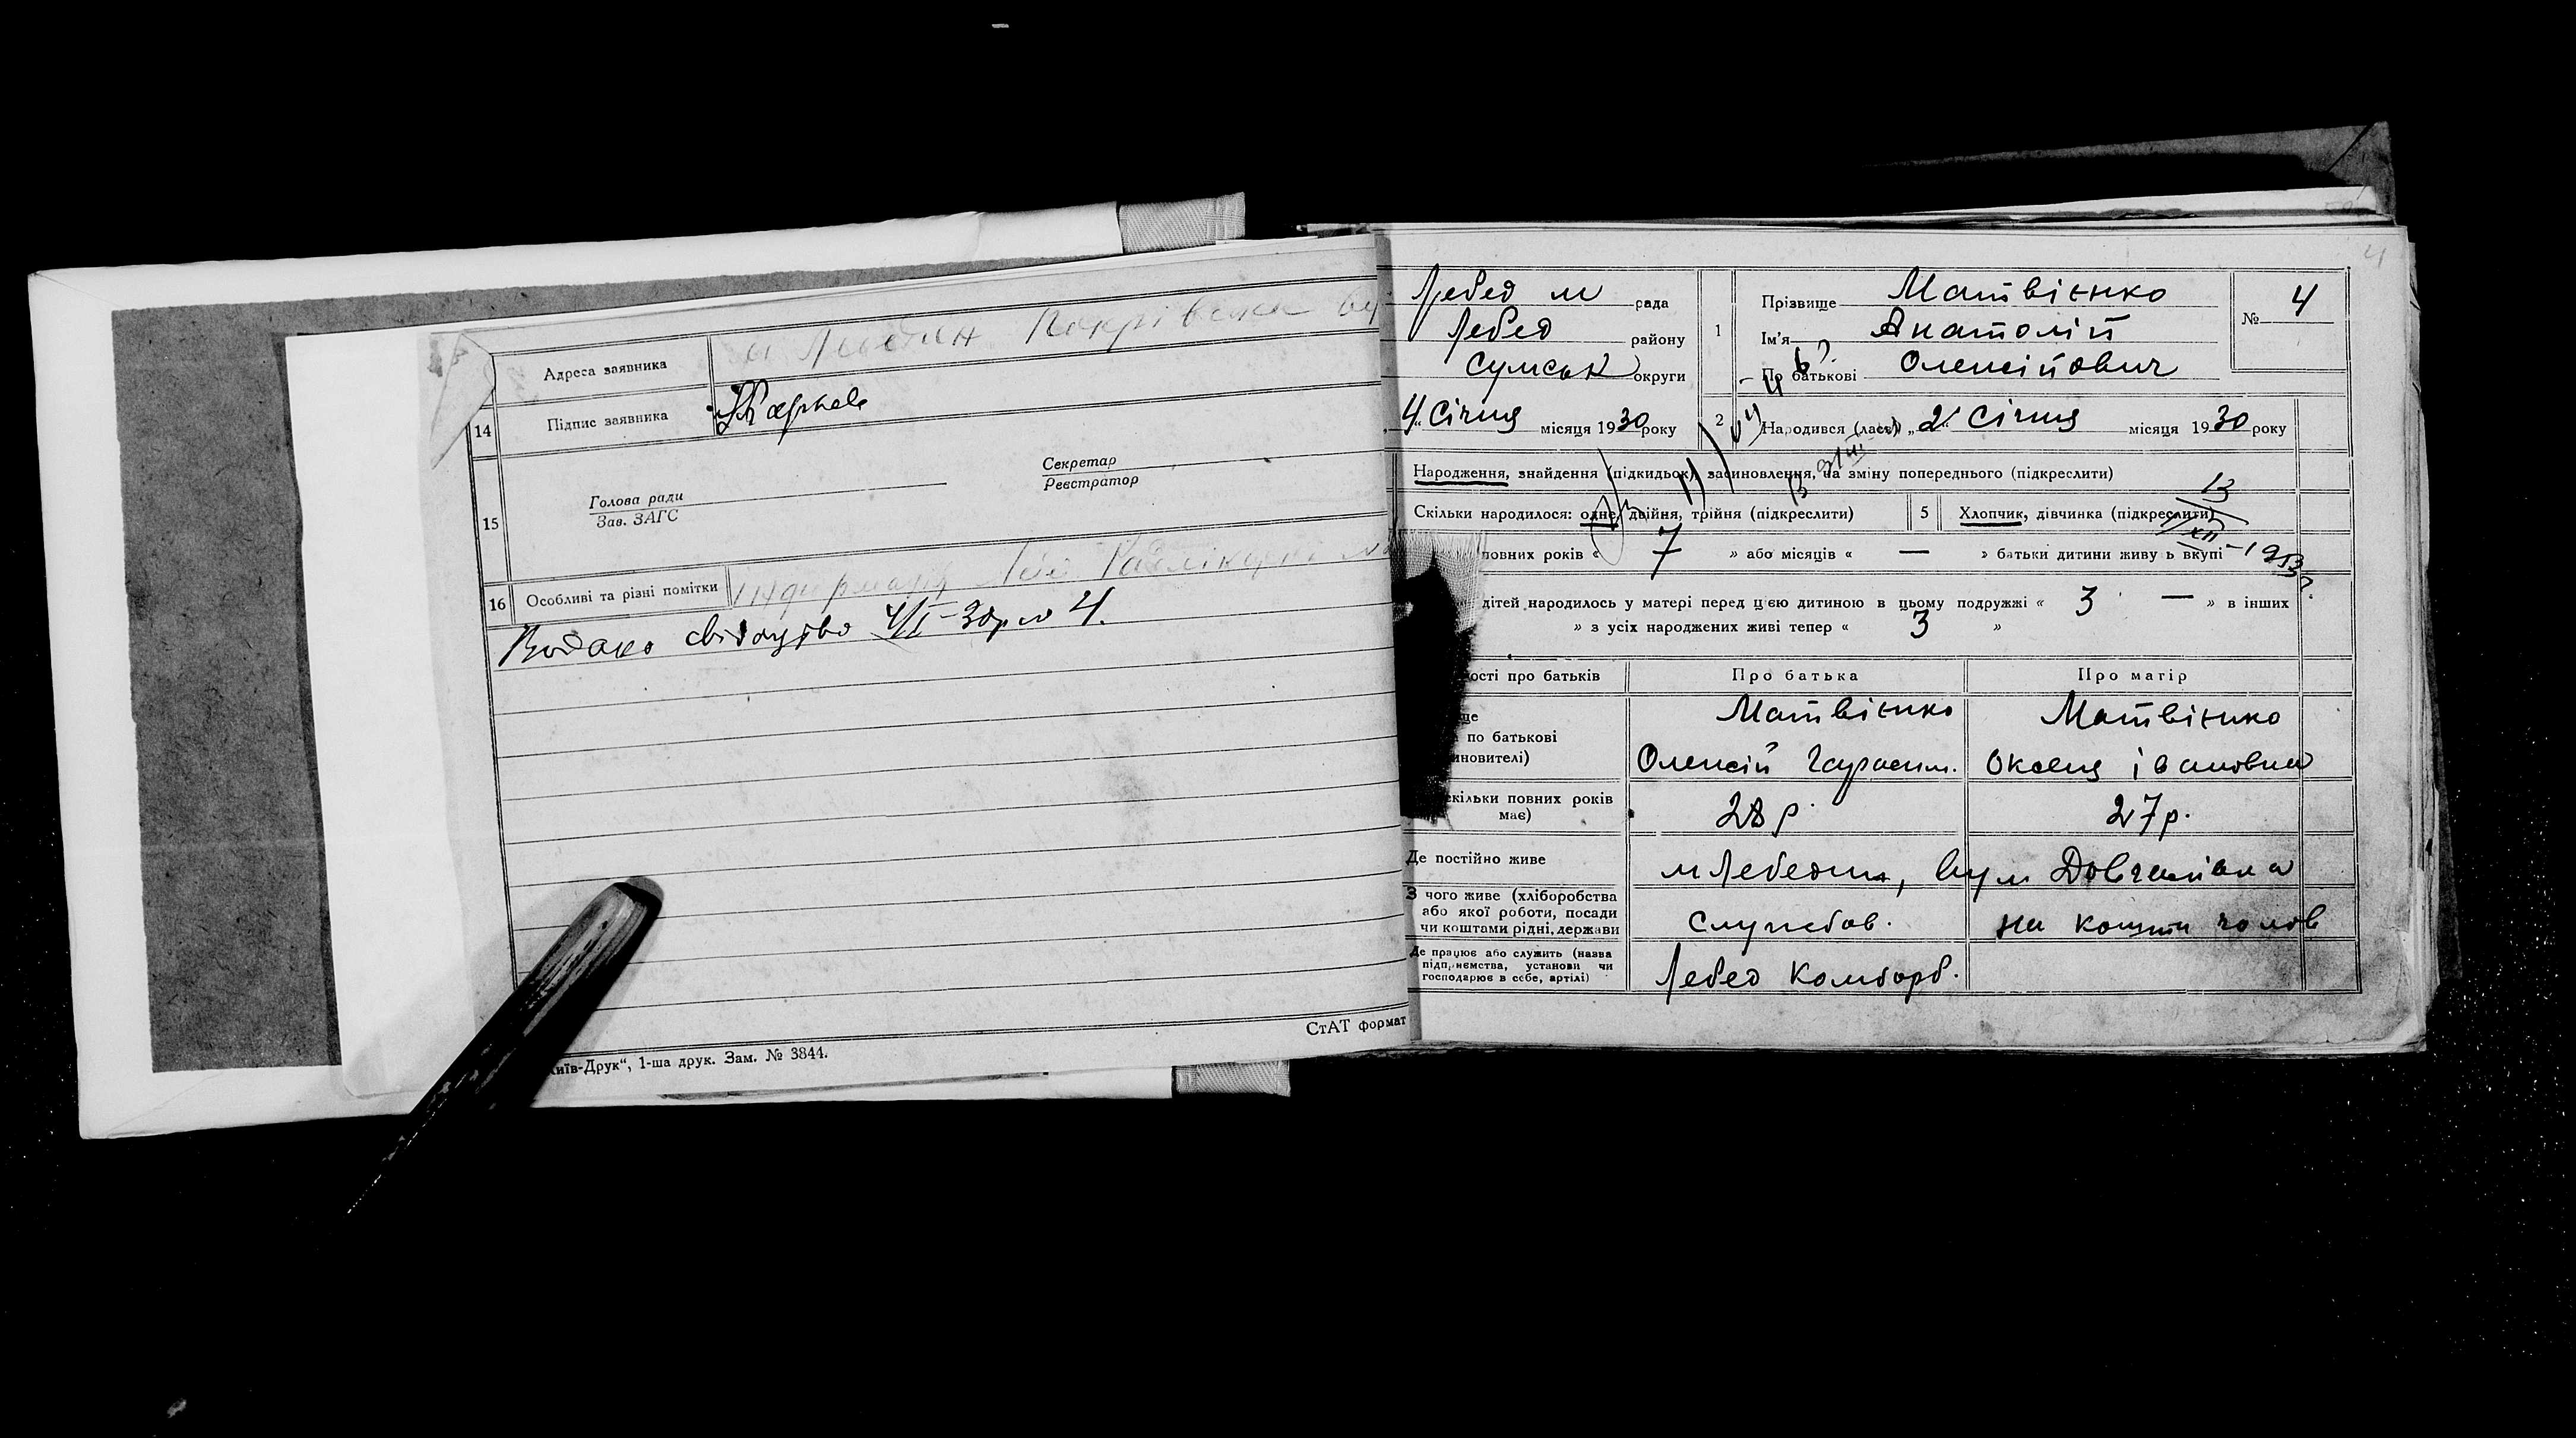 Адреса заявника
14 Підпис заявника
15 Голова ради
Зав. ЗАГС
Секретар
Реєстратор
16 Особливі та різні помітки
Видано свідоцтво 4/I-30р № 4.
СтАТ формат
Київ-Друк“, 1-ша друк. Зам. № 3844.
4
Лебед м рада
Лебед району
Сумськ округи
4 Січня місяця 1930 року
1 Прізвище Матвієнко
Ім'я Анатолій
По батькові Олексійович
№ 4
2 Народився (лась) „2“ Січня місяця 1930 року
Народження, знайдення (підкидьок), засиновлення, на зміну попереднього (підкреслити)
Скільки народилося: одне, двійня, трійня (підкреслити)
5 Хлопчик, дівчинка (підкреслити)
повних років « 7 » або місяців « — » батьки дитини живуть вкупі
дітей народилось у матері перед цією дитиною в цьому подружжі « 3 — » в інших
» з усіх народжених живі тепер « 3 »
ості про батьків
Про батька
Про матір
ще
по батькові
иновителі)
Матвієнко
Олексій Гарасим.
Матвієнко
Оксена Івановна
скільки повних років
має)
28 р
27 р.
Де постійно живе
м Лебедин, вул Довгалівка
З чого живе (хліборобства
або якої роботи, посади
чи коштами рідні, держави
Службов.
на кошти чолов
Де працює або служить (назва
підприємства, установи чи
господарює в себе, артілі)
Лебед Комборб.